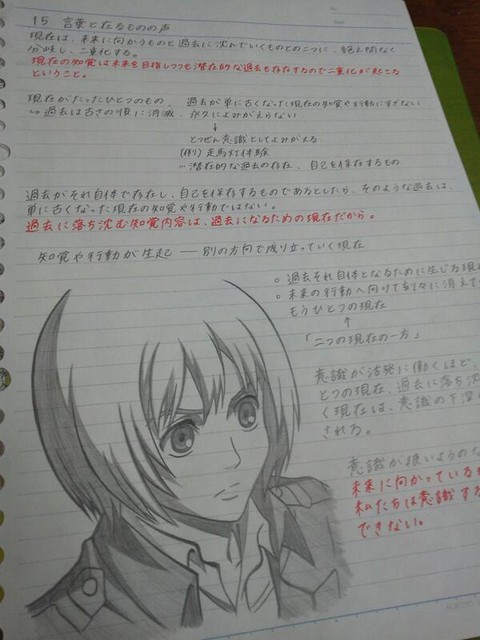 15 言葉と在るものの声
現在は、未来に向かうものと過去に沈んでいくものとの二つに、絶え間なく
分岐し、二重化する。
現在の知覚は未来を目指しつつも潜在的な過去も存在するので二重化が起こる
ということ。
現在がたったひとつのもの、過去が単に古くなった現在の知覚や行動にすぎない
⇒ 過去は古さの順に消滅、永久によみがえらない
↓
とつぜん意識としてよみがえる
(例) 走馬灯体験
…潜在的な過去の存在、自己を保存するもの
過去がそれ自体で存在し、自己を保存するものであるとしたら、そのような過去は、
単に古くなった現在の知覚や行動ではない。
過去に落ち沈む知覚内容は、過去になるための現在だから。
知覚や行動が生起 ― 別の方向で成り立っていく現在
○ 過去それ自体となるために生じる現在
○ 未来の行動へ向けて刻々に消えて
もうひとつの現在
↑
「二つの現在の一方」
意識が活発に働くほど、
とつの現在、過去に落ち沈
く現在は、意識の下深
される。
意識が狭いようのな
未来に向かっている
私たちは意識する
できない。